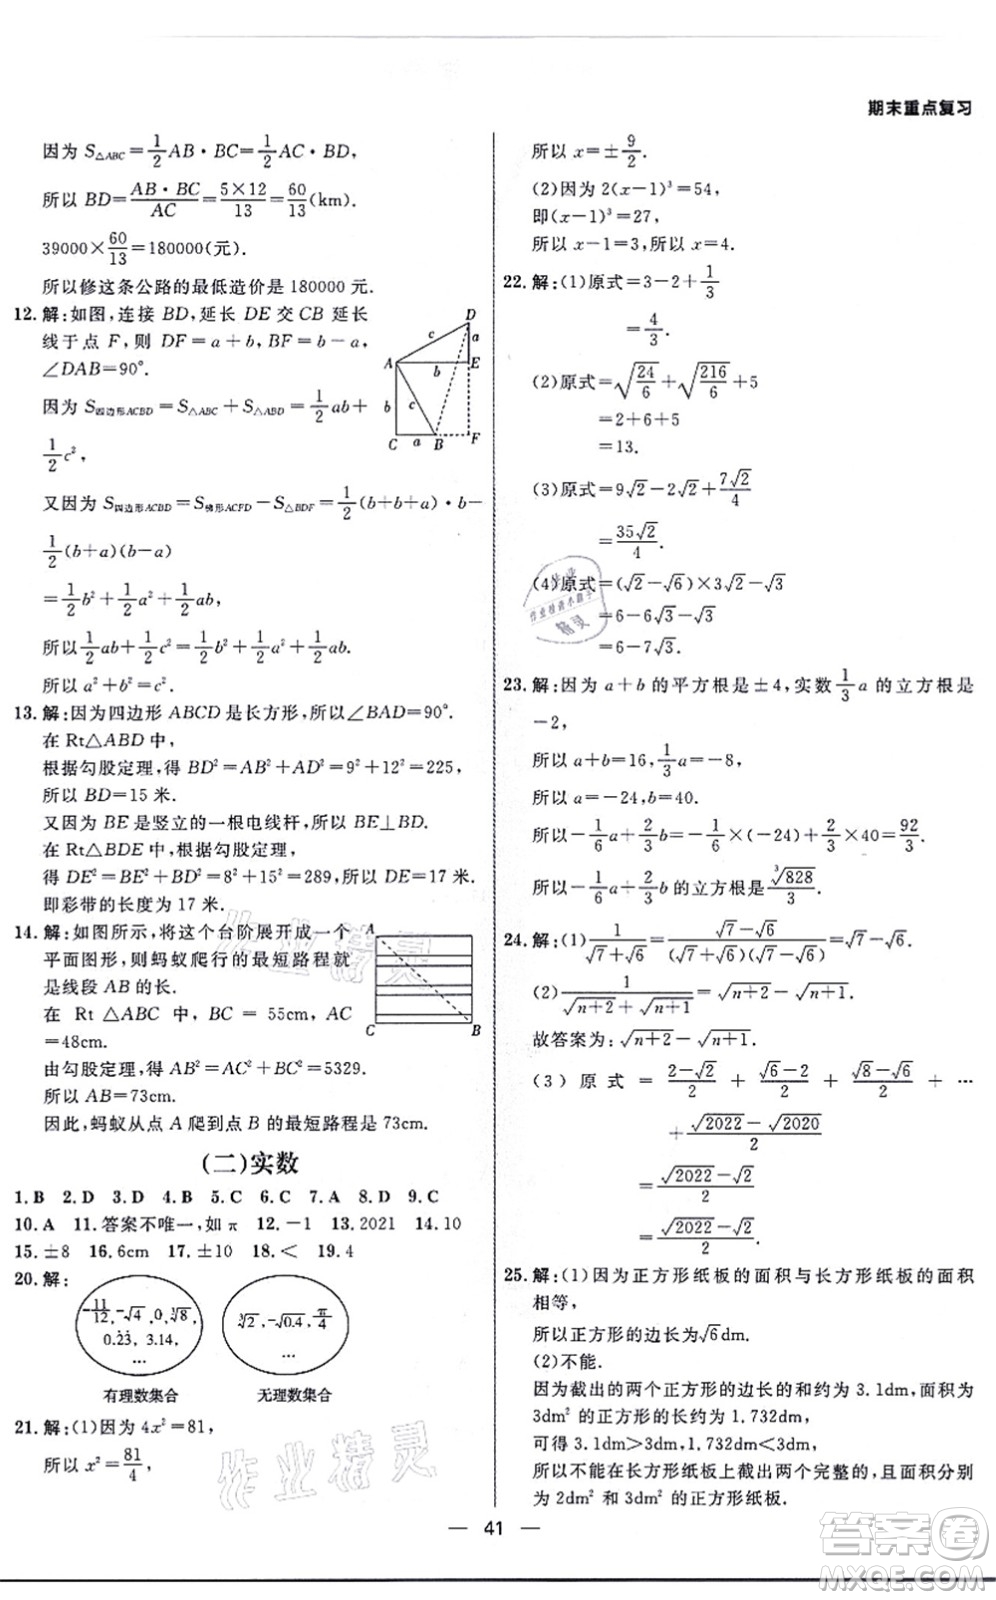 期末重点复习
因为 S△ABC=1/2 AB·BC=1/2 AC·BD,
所以 BD=AB·BC/AC=5×12/13=60/13(km).
39000×60/13=180000(元).
所以修这条公路的最低造价是 180000 元.
12.解:如图,连接 BD,延长 DE 交 CB 延长
线于点 F,则 DF=a+b,BF=b-a,
∠DAB=90°.
因为 S四边形ACBD=S△ABC+S△ABD=1/2 ab+
1/2 c²,
又因为 S四边形ACBD=S梯形ACFD-S△BDF=1/2(b+b+a)·b-
1/2(b+a)(b-a)
=1/2 b²+1/2 a²+1/2 ab,
所以 1/2 ab+1/2 c²=1/2 b²+1/2 a²+1/2 ab.
所以 a²+b²=c².
D
c
a
A
b
E
b
c
C
a
B
F
13.解:因为四边形 ABCD 是长方形,所以∠BAD=90°.
在 Rt△ABD 中,
根据勾股定理,得 BD²=AB²+AD²=9²+12²=225,
所以 BD=15 米.
又因为 BE 是竖立的一根电线杆,所以 BE⊥BD.
在 Rt△BDE 中,根据勾股定理,
得 DE²=BE²+BD²=8²+15²=289,所以 DE=17 米.
即彩带的长度为 17 米.
14.解:如图所示,将这个台阶展开成一个
平面图形,则蚂蚁爬行的最短路程就
是线段 AB 的长.
在 Rt△ABC 中,BC=55cm,AC
=48cm.
由勾股定理,得 AB²=AC²+BC²=5329.
所以 AB=73cm.
因此,蚂蚁从点 A 爬到点 B 的最短路程是 73cm.
A
C
B
(二)实数
1.B 2.D 3.D 4.B 5.C 6.C 7.A 8.D 9.C
10.A 11.答案不唯一,如 π 12.-1 13.2021 14.10
15.±8 16.6cm 17.±10 18.< 19.4
20.解:
-11/12,-√4,0,³√8,
0.2̇3̇,3.14,
…
有理数集合
³√2,-√0.4,π/4
…
无理数集合
21.解:(1)因为 4x²=81,
所以 x²=81/4,
所以 x=±9/2.
(2)因为 2(x-1)³=54,
即(x-1)³=27,
所以 x-1=3,所以 x=4.
22.解:(1)原式=3-2+1/3
=4/3.
(2)原式=√(24/6)+√(216/6)+5
=2+6+5
=13.
(3)原式=9√2-2√2+7√2/4
=35√2/4.
(4)原式=(√2-√6)×3√2-√3
=6-6√3-√3
=6-7√3.
23.解:因为 a+b 的平方根是±4,实数 1/3 a 的立方根是
-2,
所以 a+b=16,1/3 a=-8,
所以 a=-24,b=40.
所以-1/6 a+2/3 b=-1/6×(-24)+2/3×40=92/3.
所以-1/6 a+2/3 b 的立方根是 ³√828/3.
24.解:(1)1/(√7+√6)=(√7-√6)/((√7+√6)(√7-√6))=√7-√6.
(2)1/(√(n+2)+√(n+1))=√(n+2)-√(n+1).
故答案为:√(n+2)-√(n+1).
(3)原式=(2-√2)/2+(√6-2)/2+(√8-√6)/2+…
+(√2022-√2020)/2
=(√2022-√2)/2
=(√2022-√2)/2.
25.解:(1)因为正方形纸板的面积与长方形纸板的面积
相等,
所以正方形的边长为√6dm.
(2)不能.
因为截出的两个正方形的边长的和约为 3.1dm,面积为
3dm²的正方形的长约为 1.732dm,
可得 3.1dm>3dm,1.732dm<3dm,
所以不能在长方形纸板上截出两个完整的,且面积分别
为 2dm²和 3dm²的正方形纸板.
— 41 —
作业精灵
作业精灵
答案圈
MXQE.COM